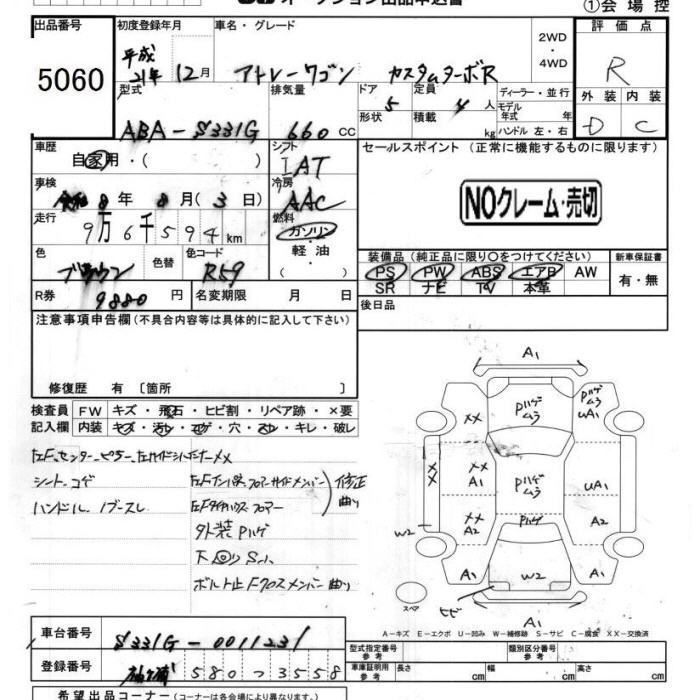 ①会場控
出品番号
5060
初度登録年月
平成
21年 12月
車名・グレード
アトレーワゴン カスタムターボR
2WD
・
4WD
評価点
R
外装 内装
D C
型式
ABA-S331G
排気量
660 cc
ドア 5
形状
定員 4 人
積載 kg
ディーラー・並行
モデル
年式 年
ハンドル 左・右
車歴
自家用・( )
シフト
IAT
車検
令和 8年 8月(3日)
冷房
AAC
走行
9万6千594km
燃料
ガソリン
・
軽油
色
ブラウン
色替
色コード
R59
R券 9880円
名変期限 月 日
セールスポイント(正常に機能するものに限ります)
NOクレーム・売切
装備品(純正品に限り〇をつけてください)
PS PW ABS エアB AW
SR ナビ TV 本革
新車保証書
有・無
後日品
注意事項申告欄(不具合内容等は具体的に記入して下さい)
修復歴 有〔箇所 〕
検査員 FW キズ・飛石・ヒビ割・リペア跡・×要
記入欄 内装 キズ・汚れ・コゲ・穴・スレ・キレ・破レ
シート コゲ
ハンドル ノブスレ
修正
曲り
外装Pハゲ
下回りサビ
ボルト止Fクロスメンバー曲り
A1
Pハゲ
ムラ
Pハゲ
ムラ
UA1
XX
XX
XX
A1
Pハゲ
ムラ
UA1
XX
A2
Pハゲ
A2
W2
A1
W2
A1
スペア
ヒビ
A1
A-キズ E-エクボ U-凹み W-補修跡 S-サビ C-腐食 XX-交換済
車台番号
S331G-0011231
登録番号
580 つ 3558
型式指定番号
参考
類別区分番号
参考
車庫証明用
参考
長さ cm
幅 cm
高さ cm
希望出品コーナー(コーナーは各会場により異なります。)